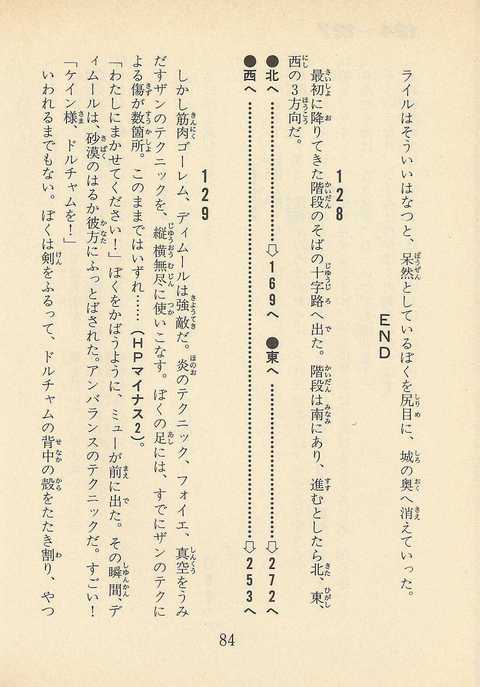 ライルはそういいはなつと、呆然としているぼくを尻目に、城の奥へ消えていった。
END
128
最初に降りてきた階段のそばの十字路へ出た。階段は南にあり、進むとしたら北、東、
西の3方向だ。
●北へ……………………⇨169へ ●東へ……………………⇨272へ
●西へ……………………………………………………⇨253へ
129
しかし筋肉ゴーレム、ディムールは強敵だ。炎のテクニック、フォイエ、真空をうみ
だすザンのテクニックを、縦横無尽に使いこなす。ぼくの足には、すでにザンのテクに
よる傷が数箇所。このままではいずれ……(HPマイナス2)。
「わたしにまかせてください！」ぼくをかばうように、ミューが前に出た。その瞬間、デ
ィムールは、砂漠のはるか彼方にふっとばされた。アンバランスのテクニックだ。すごい！
「ケイン様、ドルチャムを！」
いわれるまでもない。ぼくは剣をふるって、ドルチャムの背中の殻をたたき割り、やつ
84